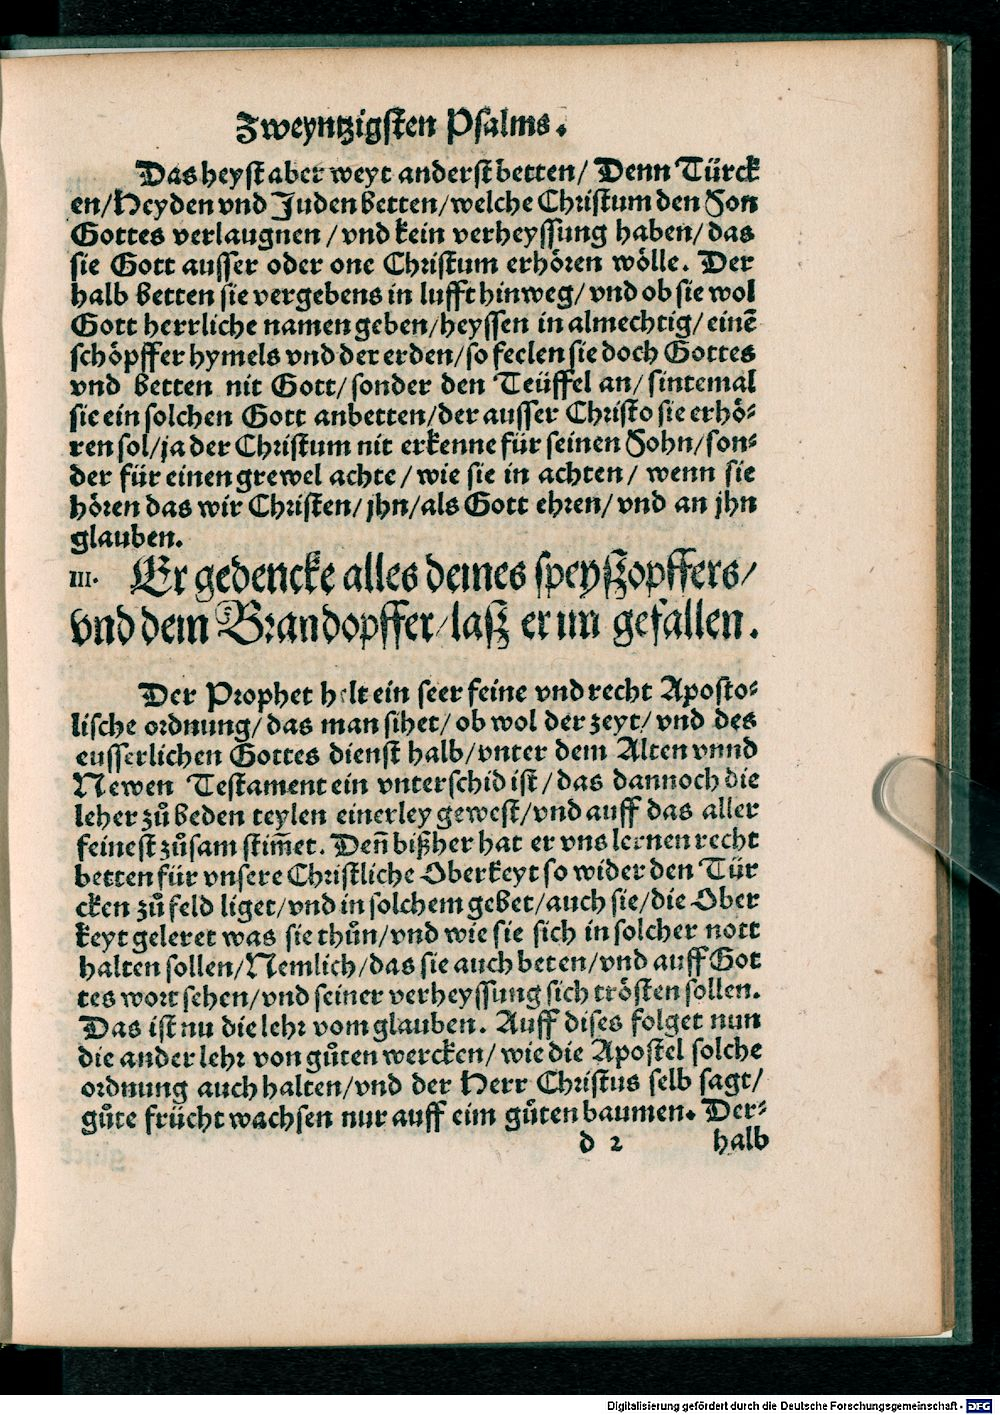 Zweyntzigsten Psalms.
Das heyst aber weyt anderst betten/ Denn Türck
en/Heyden vnd Juden betten/welche Christum den Son
Gottes verlaugnen /vnd kein verheyssung haben/das
sie Gott ausser oder one Christum erhören wölle. Der
halb betten sie vergebens in lufft hinweg/ vnd ob sie wol
Gott herrliche namen geben/heyssen in almechtig/ einē
schöpffer hymels vnd der erden/so feelen sie doch Gottes
vnd betten nit Gott/sonder den Teüffel an/ sintemal
sie ein solchen Gott anbetten/der ausser Christo sie erhö⸗
ren sol/ja der Christum nit erkenne für seinen Sohn/son⸗
der für einen grewel achte / wie sie in achten / wenn sie
hören das wir Christen/ jhn/als Gott ehren/ vnd an jhn
glauben.
III. Er gedencke alles deines speyßopffers/
vnd dein Brandopffer/laß er im gefallen.
Der Prophet helt ein seer feine vnd recht Aposto⸗
lische ordnung/ das man sihet/ ob wol der zeyt/ vnd des
eusserlichen Gottes dienst halb/vnter dem Alten vnnd
Newen Testament ein vnterschid ist/das dannoch die
leher zů beden teylen einerley gewest/vnd auff das aller
feinest zůsam stim̄et. Den̄ bißher hat er vns lernen recht
betten für vnsere Christliche Oberkeyt so wider den Tür
cken zů feld liget/vnd in solchem gebet/auch sie/die Ober
keyt geleret was sie thůn/vnd wie sie sich in solcher nott
halten sollen/Nemlich/das sie auch beten/vnd auff Got
tes wort sehen/vnd seiner verheyssung sich trösten sollen.
Das ist nu die lehr vom glauben. Auff dises folget nun
die ander lehr von gůten wercken/ wie die Apostel solche
ordnung auch halten/vnd der Herr Christus selb sagt/
gůte frücht wachsen nur auff eim gůten baumen. Der⸗
d 2 halb
Digitalisierung gefördert durch die Deutsche Forschungsgemeinschaft - DFG